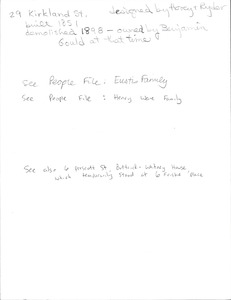 29 Kirkland St. designed by Ryder
built 1851
demolished 1898 - owned by Benjamin
Gould at that time
See People File, Eustis Family
See People File : Henry Ware Family
See also 6 Prescott St. Buttrick - Whitney house
which temporarily stood at 6 Place